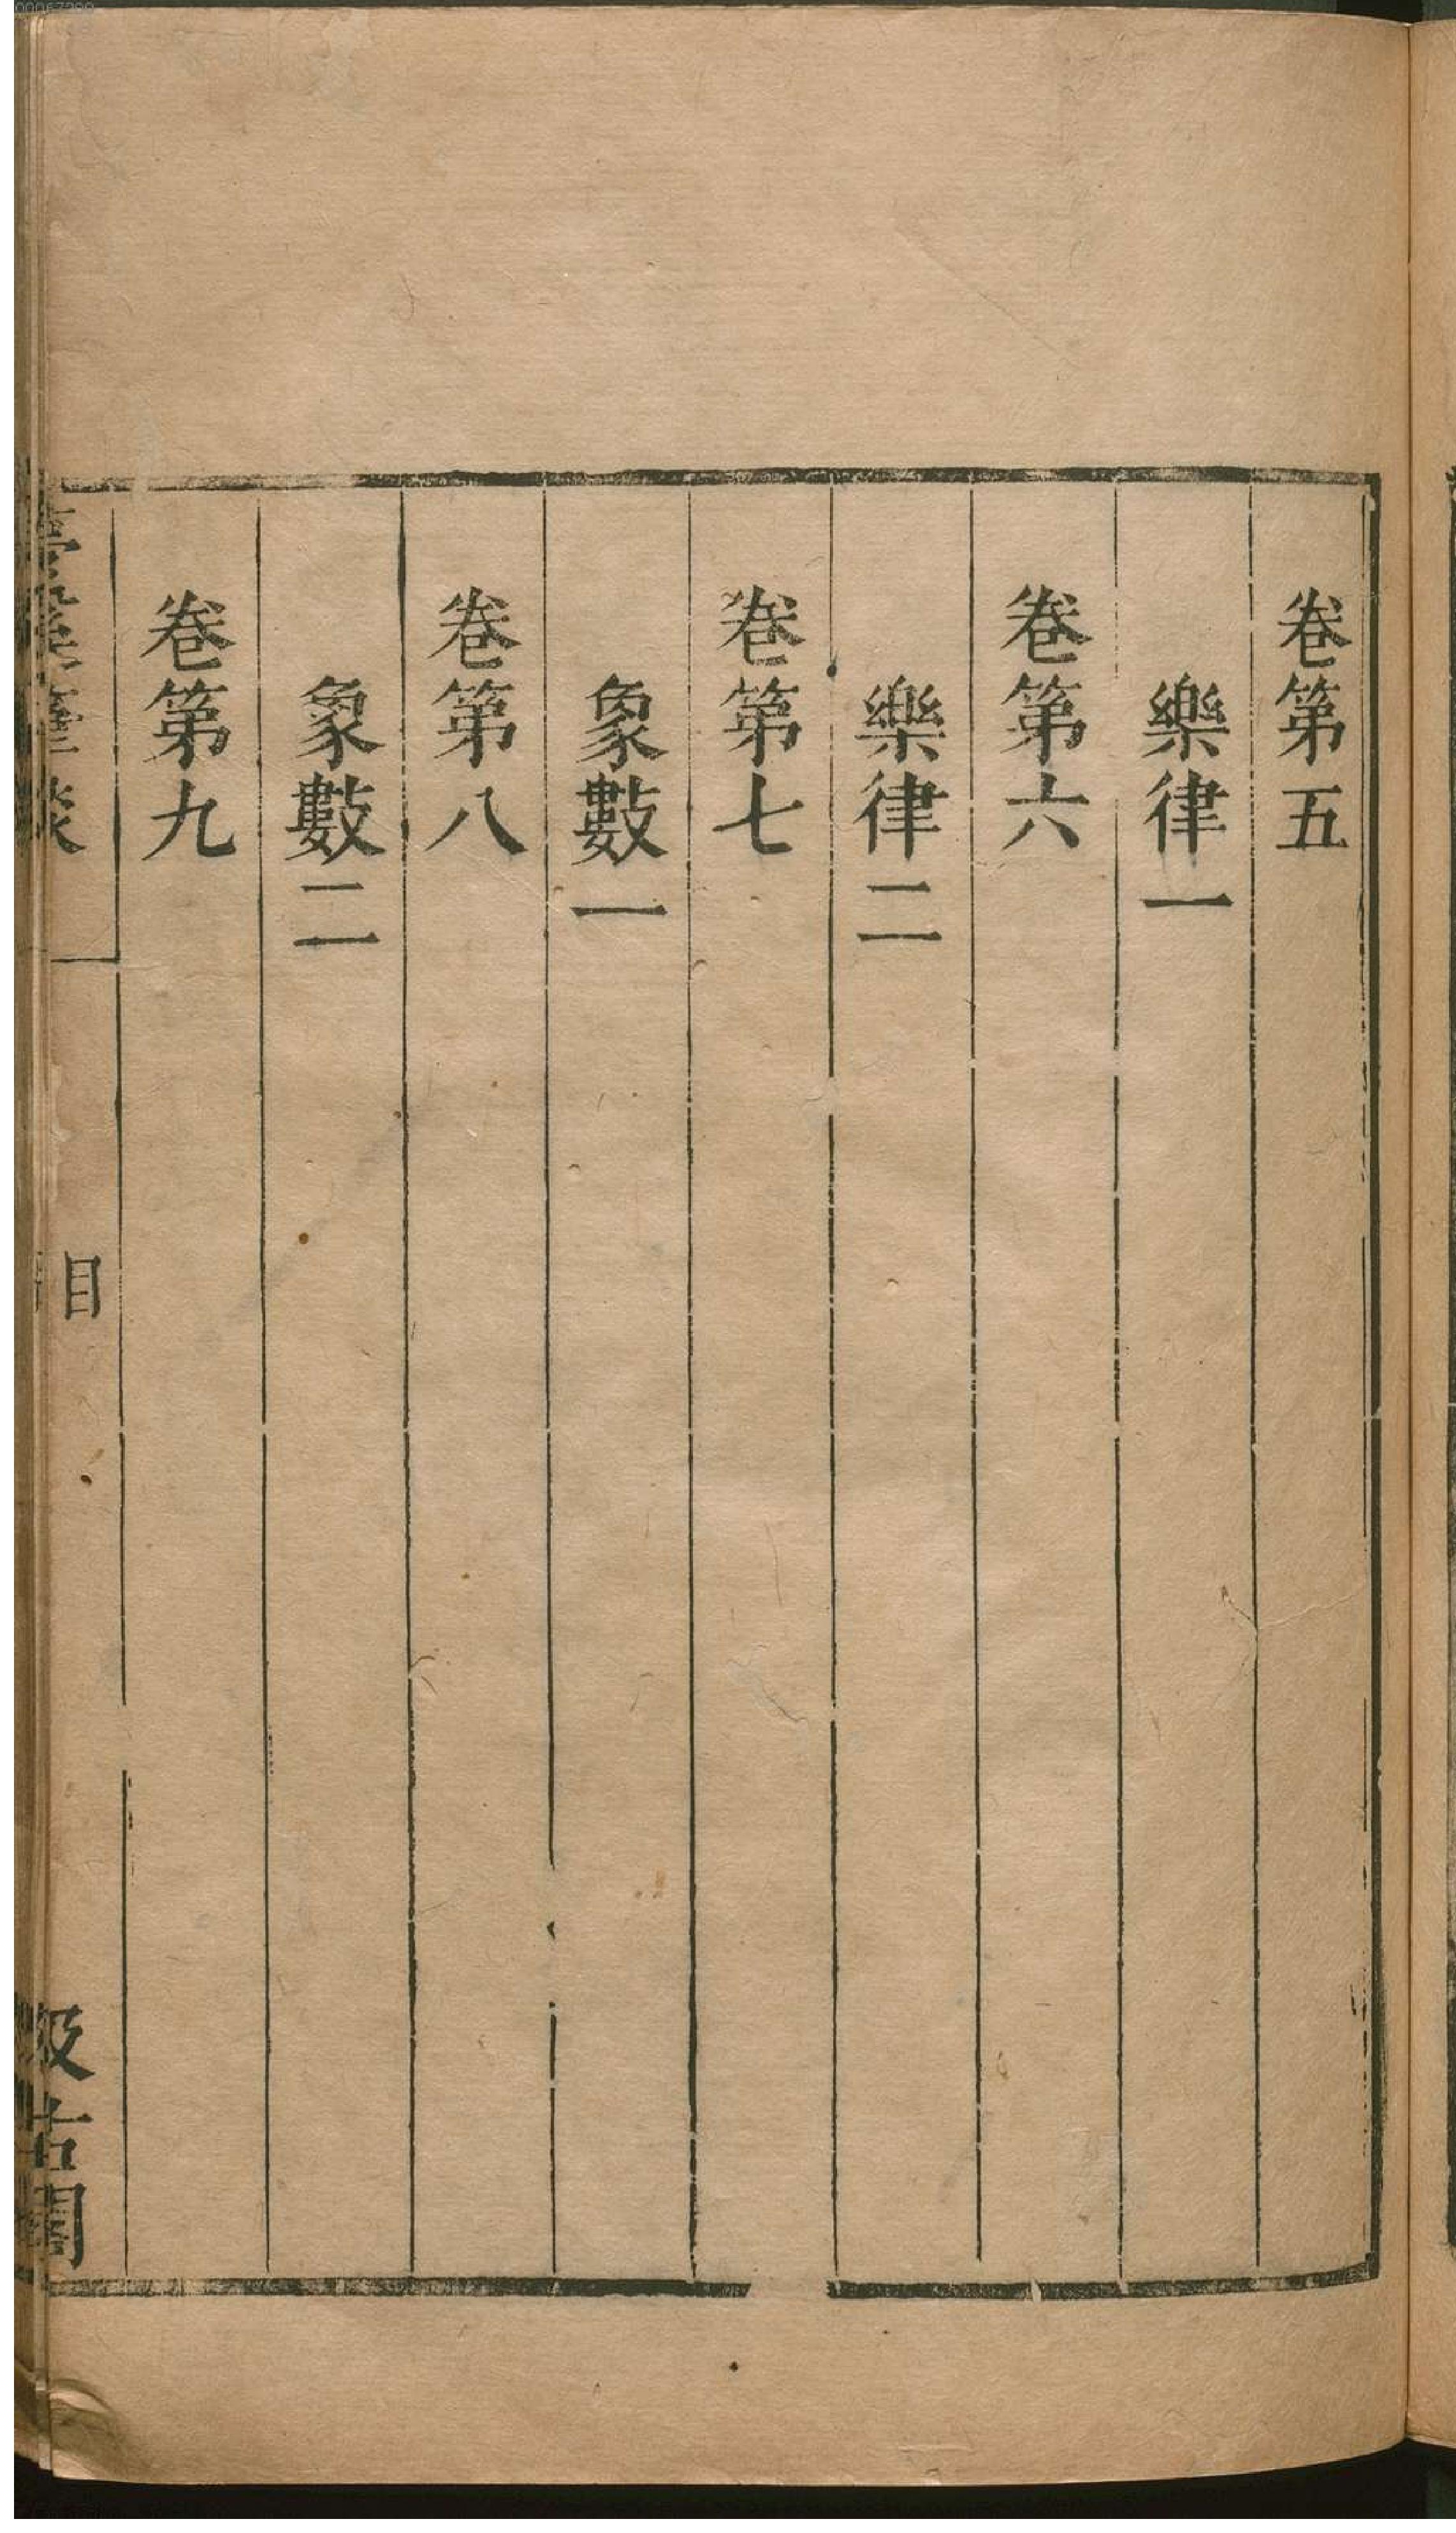 卷第五
樂律一
卷第六
樂律二
卷第七
象數一
卷第八
象數二
卷第九
目